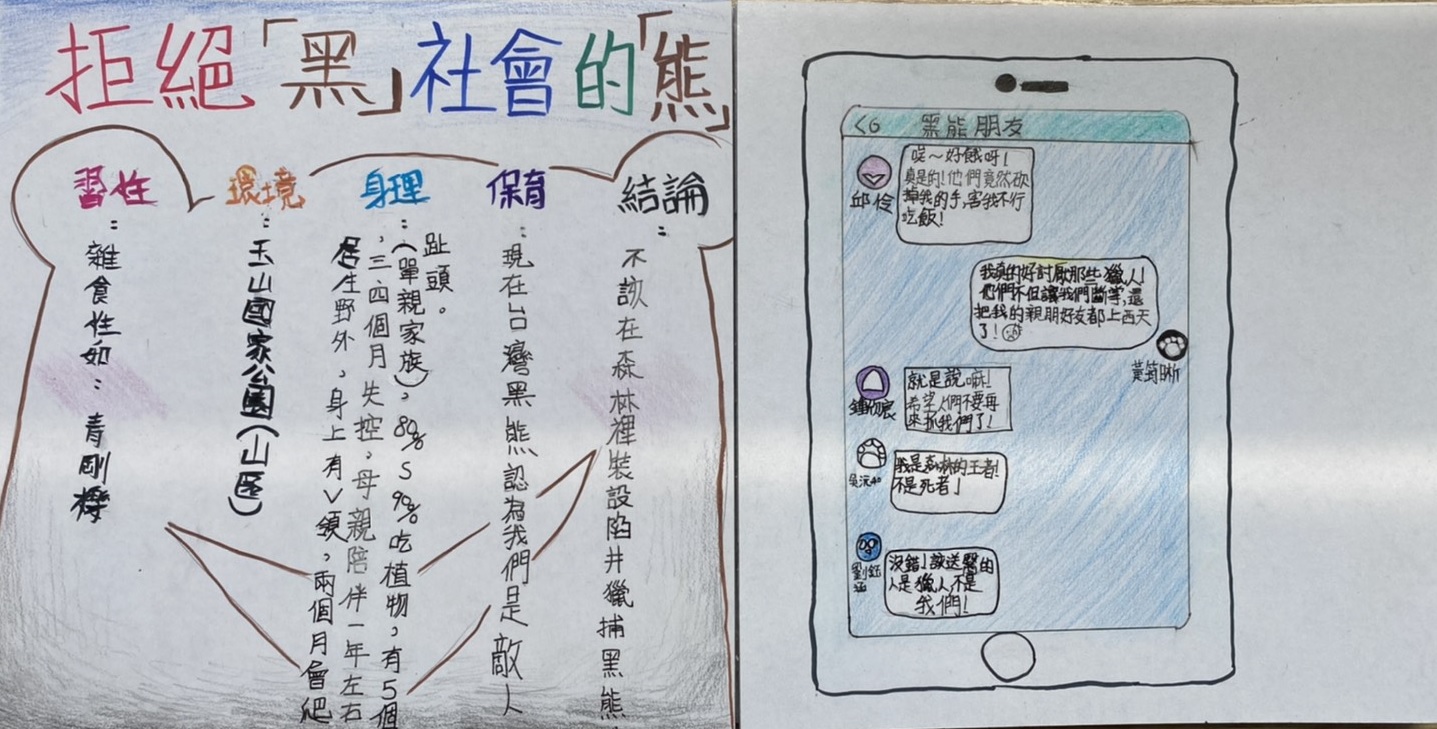 拒絕「黑」社會的「熊」
習性：
雜食性如：青剛櫟
環境：
玉山國家公園(山區)
身理：
居住野外，身上有V領，兩個月會爬
，三、四個月失控，母親陪伴一年左右
(單親家族)，80%S90%吃植物，有5個
趾頭。
保育：
現在台灣黑熊認為我們是敵人
結論：
不該在森林裡裝設陷井獵捕黑熊
<6 黑熊朋友
唉～好餓呀！
真是的！他們竟然砍
掉我的手，害我不行
吃飯！
邱伶
我真的好討厭那些獵人！
他們不但讓我們斷掌，還
把我的親朋好友都上西天
了！
黃筠晰
就是說嘛！
希望人們不要再
來抓我們了！
鍾欣宸
我是森林的王者！
不是死者」
沒錯！該送醫的
人是獵人，不是
我們！
劉鈺
涵